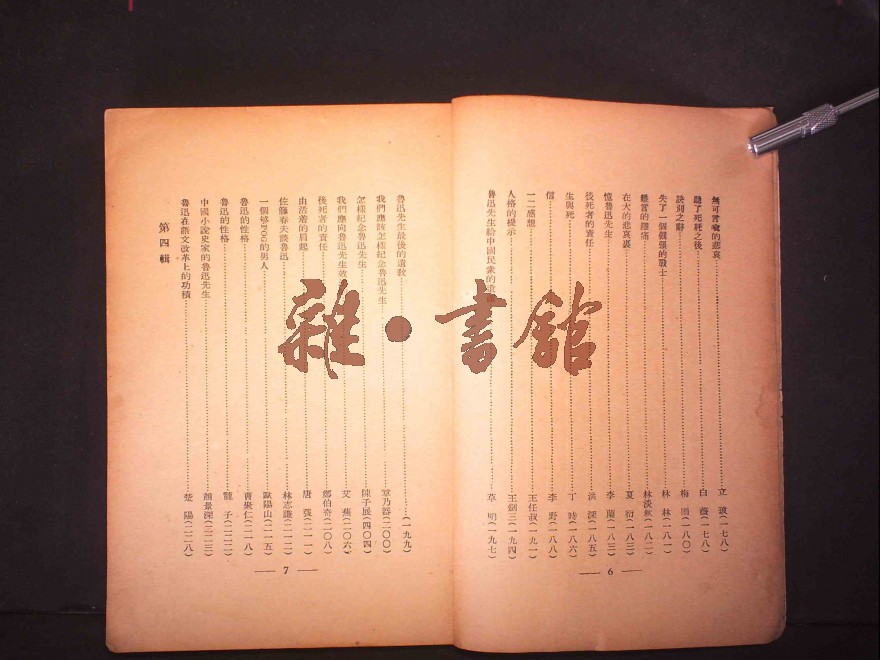 無可言喻的悲哀……立 波(一七八)
聽了死耗之後……白 薇(一七八)
訣別之辭……梅 雨(一八〇)
失了一個倔強的戰士……林 林(一八一)
難言的創痛……林淡秋(一八二)
在大的悲哀裏……夏 衍(一八三)
憶魯迅先生……李 蘭(一八三)
後死者的責任……洪 深(一八五)
生與死……丁 時(一八六)
信……李 野(一八八)
一二感想……王任叔(一九一)
人格的提示……王統三(一九四)
魯迅先生給中國民衆的遺……草 明(一九七)
6
魯迅先生最後的遺教……(一九九)
我們應該怎樣紀念魯迅先生……章乃器(二〇〇)
怎樣紀念魯迅先生……陳子展(四〇四)
我們應向魯迅先生效……艾 蕪(二〇六)
後死者的責任……鄭伯奇(二〇八)
由活着的肩起……唐 弢(二一一)
佐藤春夫談魯迅……林志謙(二一二)
一個够FOG的男人……歐陽山(二一五)
魯迅的性格……曹聚仁(二一八)
魯迅的性格……龍 子(二二二)
中國小說史家的魯迅先生……趙景深(二二三)
第四輯
魯迅在語文改革上的功積……楚 陽(二二八)
7
雜·書館